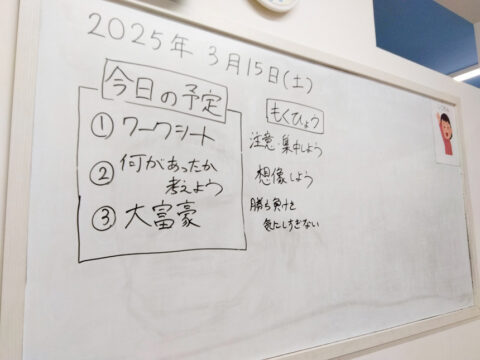 2025年 3月15日(土)
今日の予定
① ワークシート
② 何があったか
考えよう
③ 大富豪
もくひょう
注意・集中しよう
想像しよう
勝ち負けを
気にしすぎない